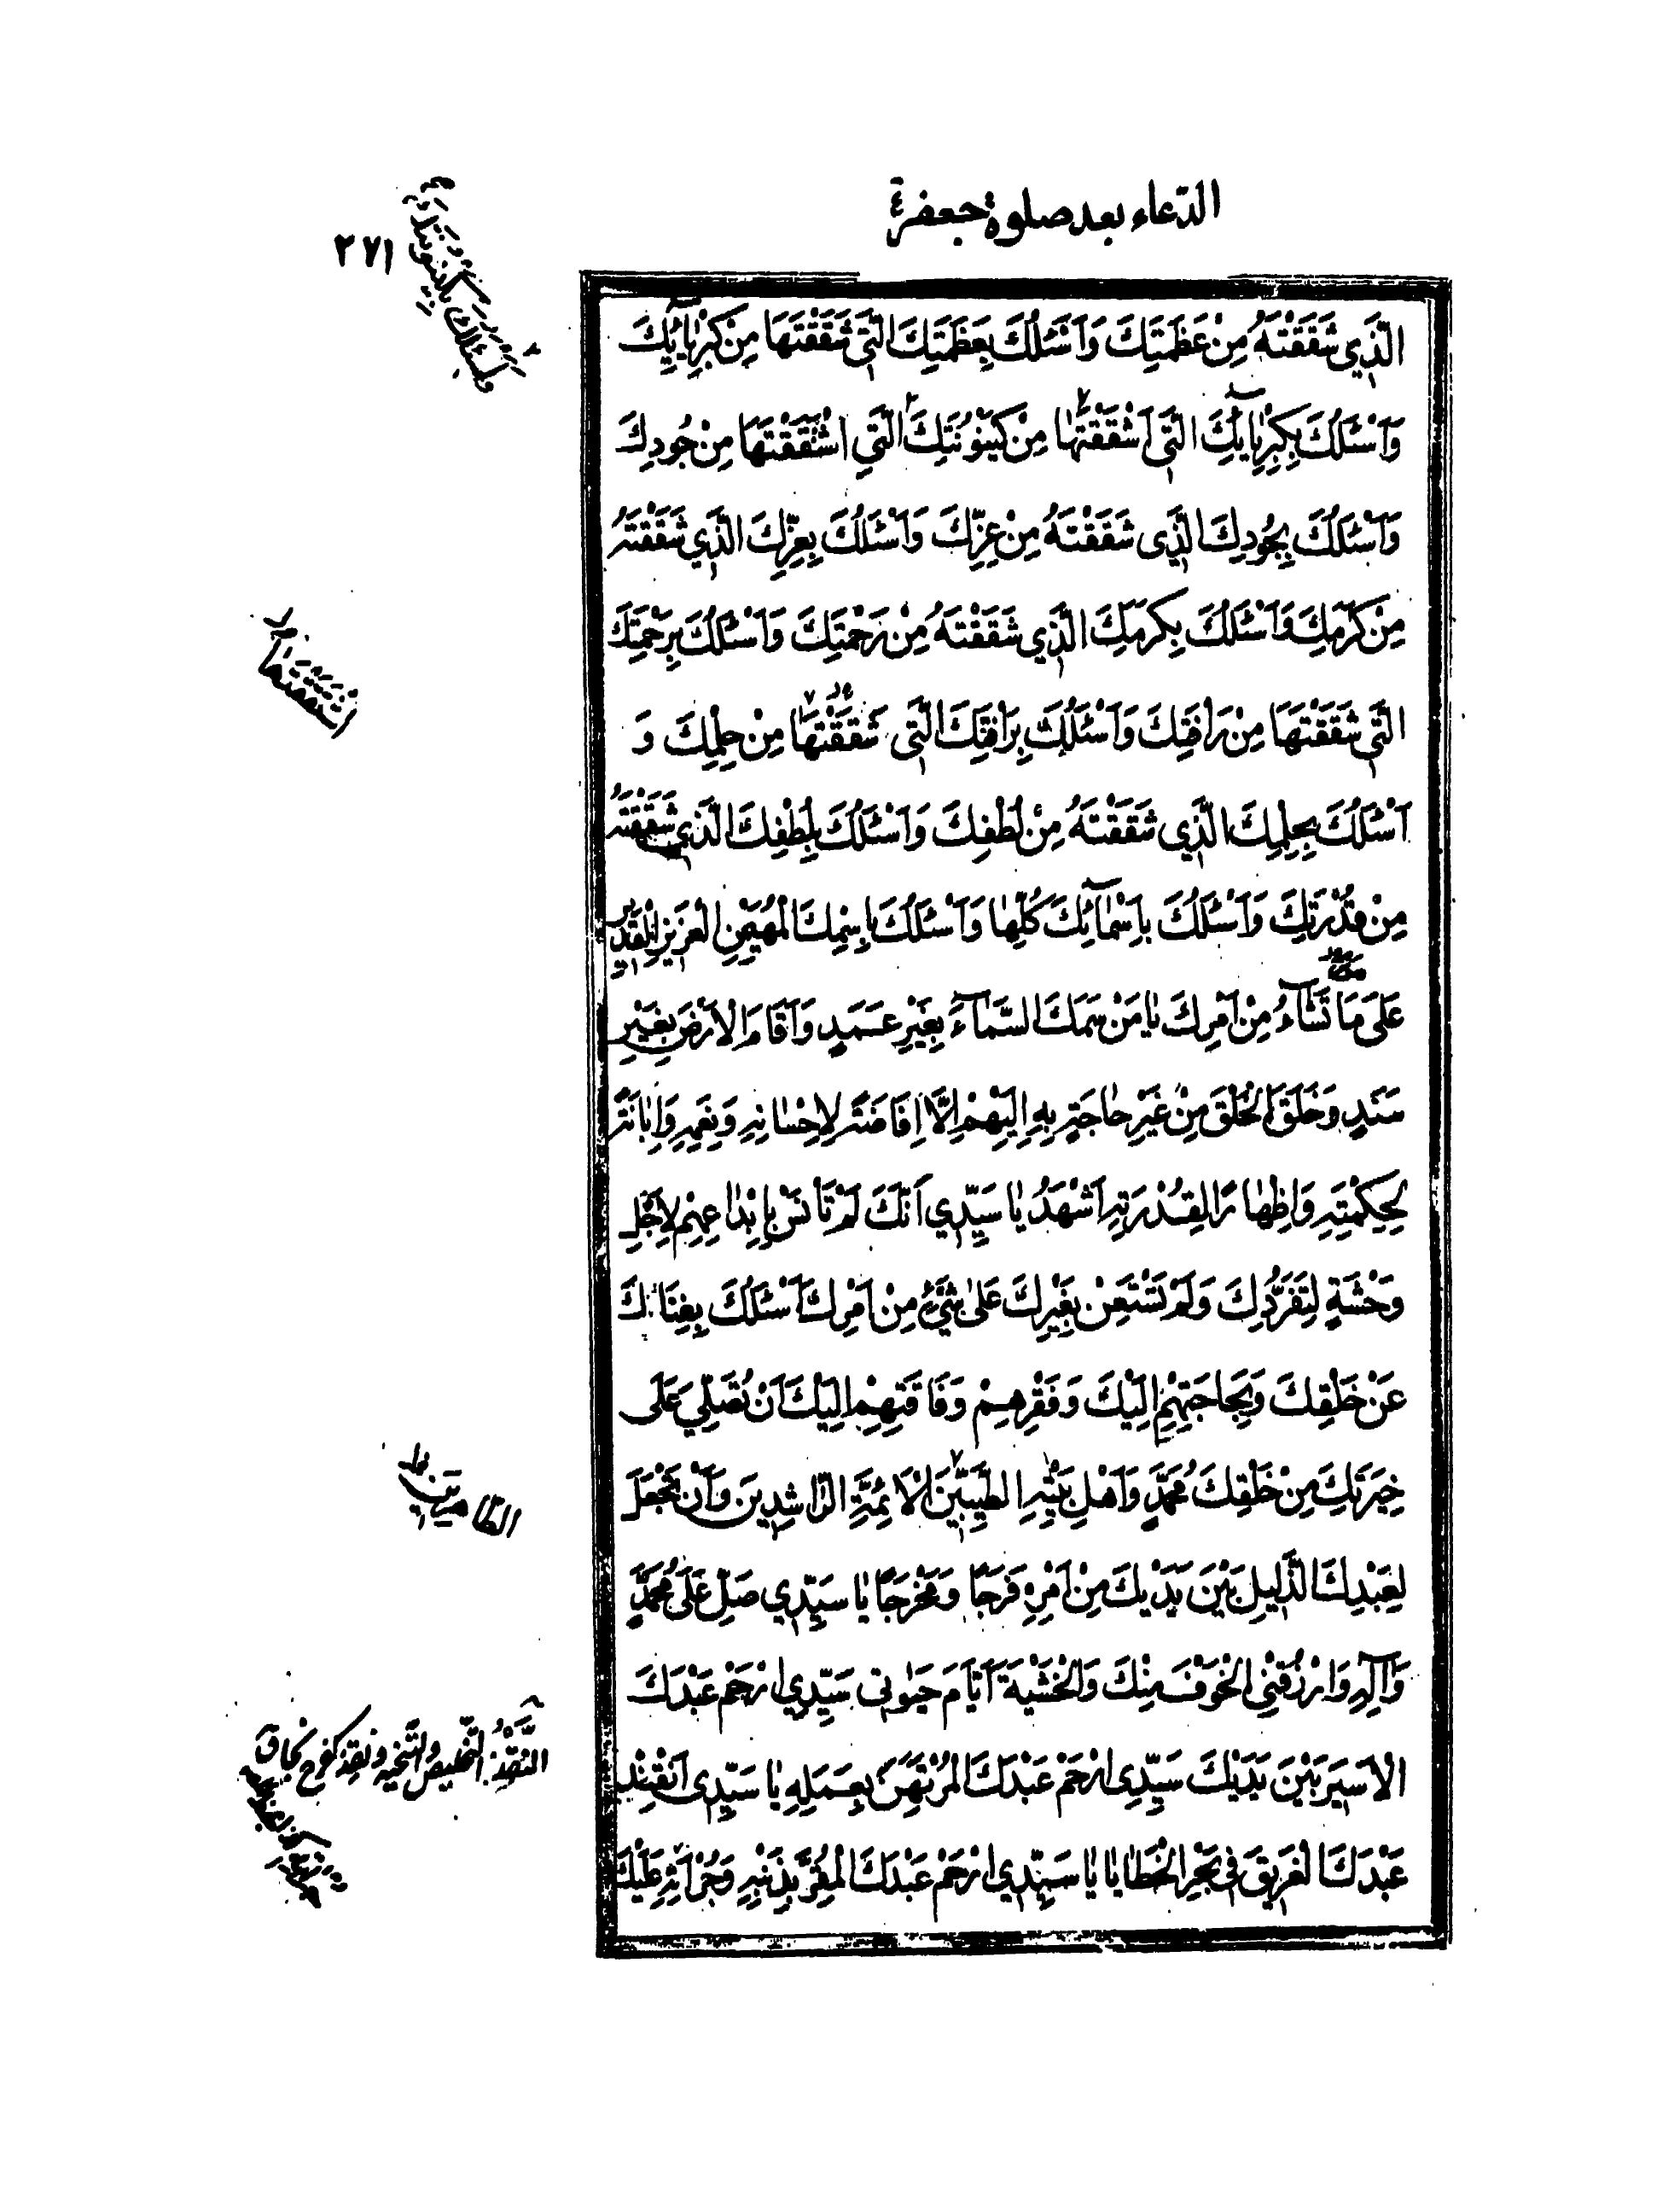 الدّعاء بعد صلوة جعفر ع
٢٧١
الَّذِي شَقَقْتَهُ مِنْ عَظَمَتِكَ وَاَسْئَلُكَ بِعَظَمَتِكَ الَّتِي شَقَقْتَهَا مِنْ كِبْرِيٰائِكَ
وَاَسْئَلُكَ بِكِبْرِيٰائِكَ الَّتِي اشْقَقْتَهٰا مِنْ كَيْنُونَتِكَ الَّتِي اشْتَقَقْتَهَا مِنْ جُودِكَ
وَاَسْئَلُكَ بِجُودِكَ الَّذِي شَقَقْتَهُ مِنْ عِزِّكَ وَاَسْئَلُكَ بِعِزِّكَ الَّذِي شَقَقْتَهُ
مِنْ كَرَمِكَ وَاَسْئَلُكَ بِكَرَمِكَ الَّذِي شَقَقْتَهُ مِنْ رَحْمَتِكَ وَاَسْئَلُكَ بِرَحْمَتِكَ
الَّتِي شَقَقْتَهَا مِنْ رَاْفَتِكَ وَاَسْئَلُكَ بِرَاْفَتِكَ الَّتِي شَقَقْتَهٰا مِنْ حِلْمِكَ وَ
اَسْئَلُكَ بِحِلْمِكَ الَّذِي شَقَقْتَهُ مِنْ لُطْفِكَ وَاَسْئَلُكَ بِلُطْفِكَ الَّذِي شَقَقْتَهُ
مِنْ قُدْرَتِكَ وَاَسْئَلُكَ بِاَسْمٰآئِكَ كُلِّهٰا وَاَسْئَلُكَ بِاسْمِكَ الْمُهَيْمِنِ الْعَزِيزِ الْقَدِيرِ
عَلَى مَا تَشٰآءُ مِنْ اَمْرِكَ يٰا مَنْ سَمَكَ السَّمٰآءَ بِغَيْرِ عَمَدٍ وَاَقَامَ الْاَرْضَ بِغَيْرِ
سَنَدٍ وَخَلَقَ الْخَلْقَ مِنْ غَيْرِ حٰاجَةٍ بِهِ اِلَيْهِمْ اِلَّا اِفَاضَةً لِاِحْسٰانِهِ وَنِعَمِهِ وَاِبَانَةً
لِحِكْمَتِهِ وَاِظْهٰارًا لِقُدْرَتِهِ اَشْهَدُ يٰا سَيِّدِي اَنَّكَ لَمْ تَاْنَسْ بِاِبْدٰاعِهِمْ لِاَجْلِ
وَحْشَةٍ لِتَفَرُّدِكَ وَلَمْ تَسْتَعِنْ بِغَيْرِكَ عَلىٰ شَيْءٍ مِنْ اَمْرِكَ اَسْئَلُكَ بِغِنَاكَ
عَنْ خَلْقِكَ وَبِحٰاجَتِهِمْ اِلَيْكَ وَفَقْرِهِمْ وَفَاقَتِهِمْ اِلَيْكَ اَنْ تُصَلِّيَ عَلَى
خِيَرَتِكَ مِنْ خَلْقِكَ مُحَمَّدٍ وَاَهْلِ بَيْتِهِ الطَّيِّبِينَ الْاَئِمَّةِ الرَّاشِدِينَ وَاَنْ تَجْعَلَ
لِعَبْدِكَ الذَّلِيلِ بَيْنَ يَدَيْكَ مِنْ اَمْرِهِ فَرَجًا وَمَخْرَجًا يٰا سَيِّدِي صَلِّ عَلَى مُحَمَّدٍ
وَآلِهِ وَارْزُقْنِي الْخَوْفَ مِنْكَ وَالْخَشْيَةَ اَيّٰامَ حَيٰوتِي سَيِّدِي ارْحَمْ عَبْدَكَ
الْاَسِيرَ بَيْنَ يَدَيْكَ سَيِّدِي ارْحَمْ عَبْدَكَ الْمُرْتَهَنَ بِعَمَلِهِ يٰا سَيِّدِي اَنْقِذْ
عَبْدَكَ الْغَرِيقَ فِي بَحْرِ الْخَطٰايٰا يٰا سَيِّدِي ارْحَمْ عَبْدَكَ الْمُقِرَّ بِذَنْبِهِ وَجُرْاَتِهِ عَلَيْكَ
وَاَسْئَلُكَ بِكَيْنُونَتِكَ
اشْتَقَقْتَهَا
الطّاهرين
النَّقْذُ التخليص والتنجية ونقذ كفرح نجا ق